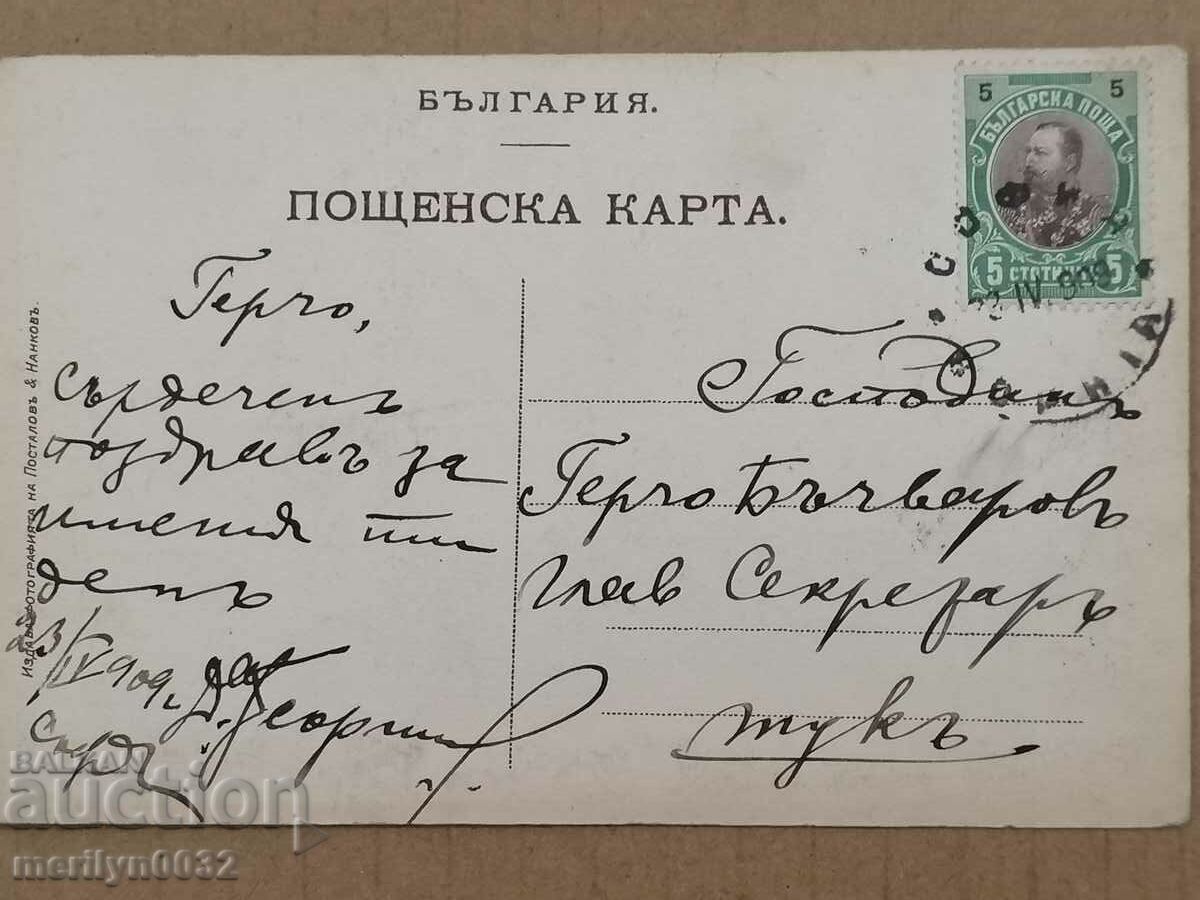 БЪЛГАРИЯ.
ПОЩЕНСКА КАРТА.
5 5
БЪЛГАРСКА ПОЩА
5 СТОТИНКИ 5
СОФИЯ
23 IV. 909
Герчо,
сърдеченъ
поздравъ за
имения ти
денъ
23/IV 909 г.
Д. Георги
Господинъ
Герчо Бъчваровъ
Глав Секретаръ
тукъ.
ИЗДАВА ФОТОГРАФИЯТА НА ПОСТАЛОВЪ & НАНКОВЪ.
BALKAN
auction
merilyn0032